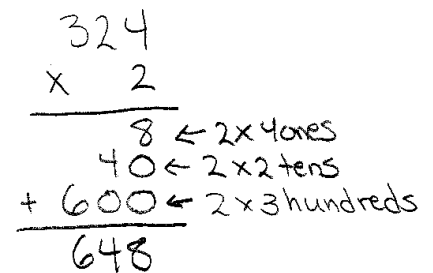 324
x 2
8 ← 2x4ones
40 ← 2x2 tens
+ 600 ← 2x3 hundreds
648